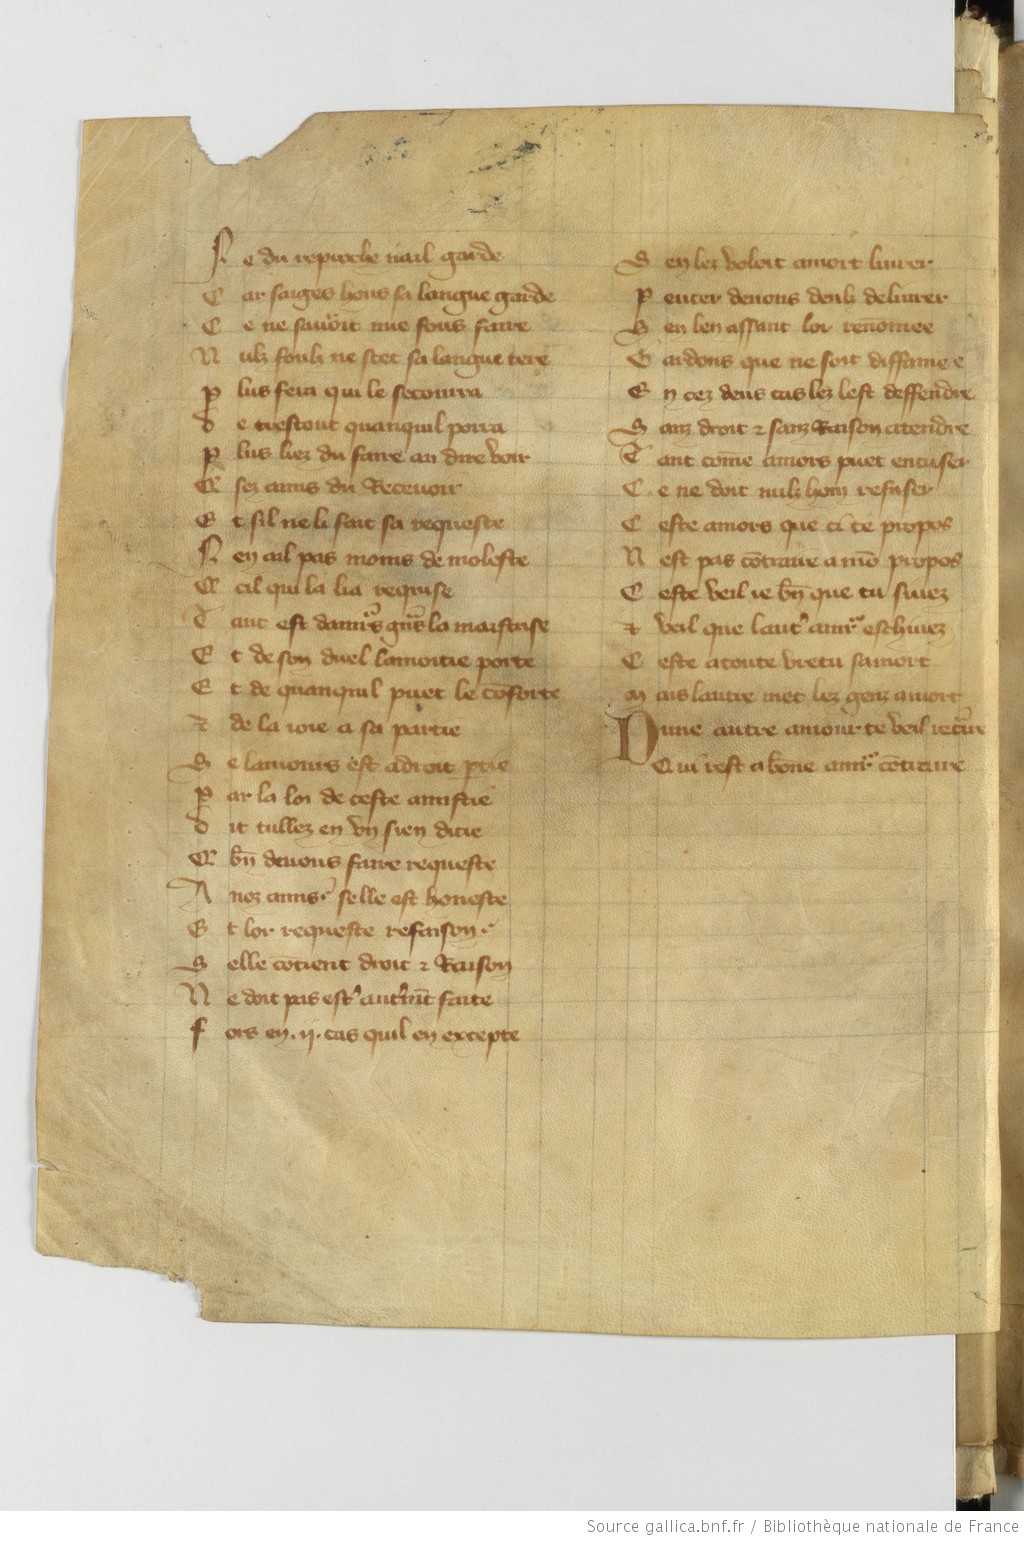 N e du reproche nail garde
C ar saiges hons sa langue garde
C e ne sauoit mie fous faire
N ulz foulz ne scet sa langue tere
P lus fera qui le secourra
D e trestout quanquil porra
P lus liez du faire au dire voir
Q sez amis du Receuoir
E t sil ne li fait sa requeste
N en ail pas moins de moleste
Q cil qui la lia requise
T ant est damᵒʳs gᵃⁿs la maistrise
E t de son duel lamoitie porte
E t de quanquil puet le cōforte
⁊ de la ioie a sa partie
S e lamours est adroit ptie
P ar la loi de ceste amistie
D it tullez en vn sien ditie
Q bn̄ deuons faire requeste
A noz amis selle est honeste
E t lor requeste refaison
S elle cōtient droit ⁊ Raison
N e doit pas estʳ autʳmt̄ faite
F ors en .ij. cas quil en excepte
S en lez voloit amort liurer
P encer deuons deulz deliurer
S en len assaut lor renōmee
G ardons que ne soit diffamee
E n cez deus cas lez lest deffendre
S anz droit ⁊ sanz Raison atendre
T ant cōme amors puet encuser
C e ne doit nulz hom refuser
C este amors que ci te propos
N est pas cōtraire a mō propos
C este veil ie bn̄ que tu siuez
⁊ veil que lautʳ amᵒʳ eschiuez
C este a toute vretu samort
M ais lautre met lez genz amort
D une autre amour te veil retᵃire
Q ui rest a bone amᵒʳ cōtraire
Source gallica.bnf.fr / Bibliothèque nationale de France